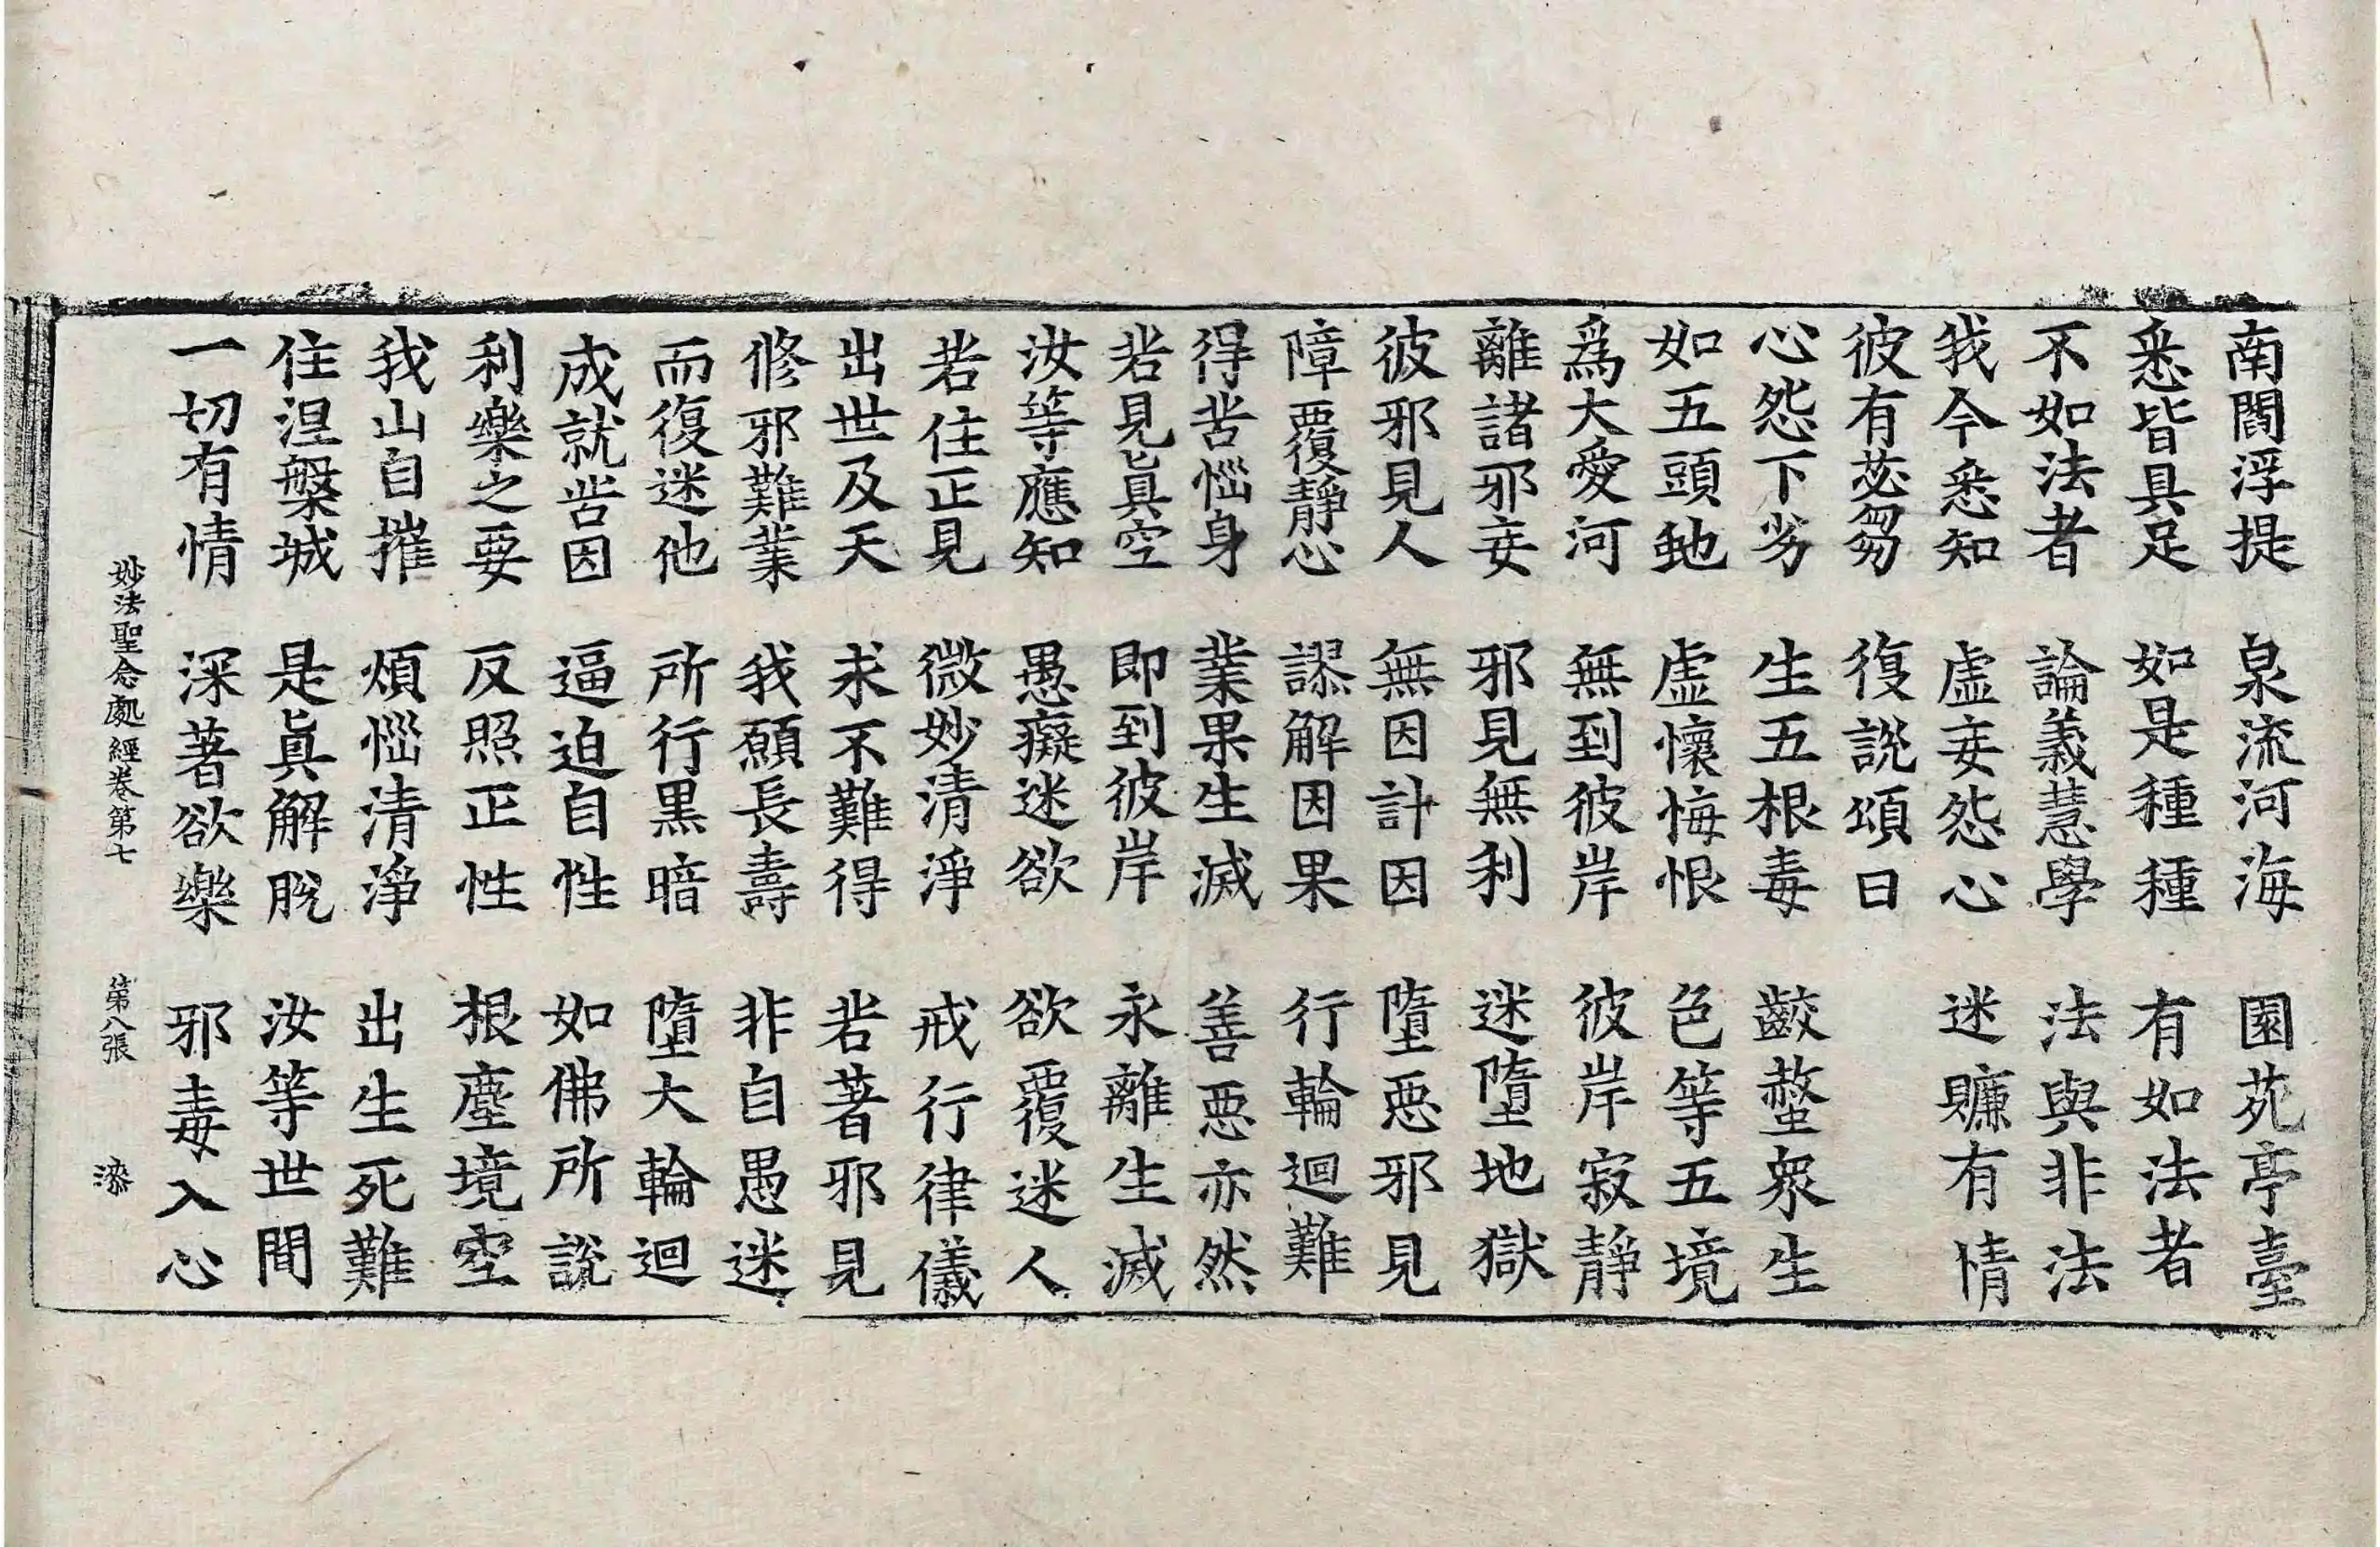 南閻浮提　泉流河海　園苑亭臺
悉皆具足　如是種種　有如法者
不如法者　論義慧學　法與非法
我今悉知　虛妄怨心　迷賺有情
彼有苾芻　復說頌曰
心怨下劣　生五根毒　齩螫衆生
如五頭虵　虛懷悔恨　色等五境
爲大愛河　無到彼岸　彼岸寂靜
離諸邪妄　邪見無利　迷墮地獄
彼邪見人　無因計因　墮惡邪見
障覆靜心　謬解因果　行輪迴難
得苦惱身　業果生滅　善惡亦然
若見眞空　即到彼岸　永離生滅
汝等應知　愚癡迷欲　欲覆迷人
若住正見　微妙清淨　戒行律儀
出世及天　求不難得　若著邪見
修邪難業　我願長壽　非自愚迷
而復迷他　所行黑暗　墮大輪迴
成就苦因　逼迫自性　如佛所說
利樂之要　反照正性　根塵境空
我山自摧　煩惱清淨　出生死難
住涅槃城　是眞解脫　汝等世間
一切有情　深著欲樂　邪毒入心
妙法聖念處經卷第七　第八張　漆